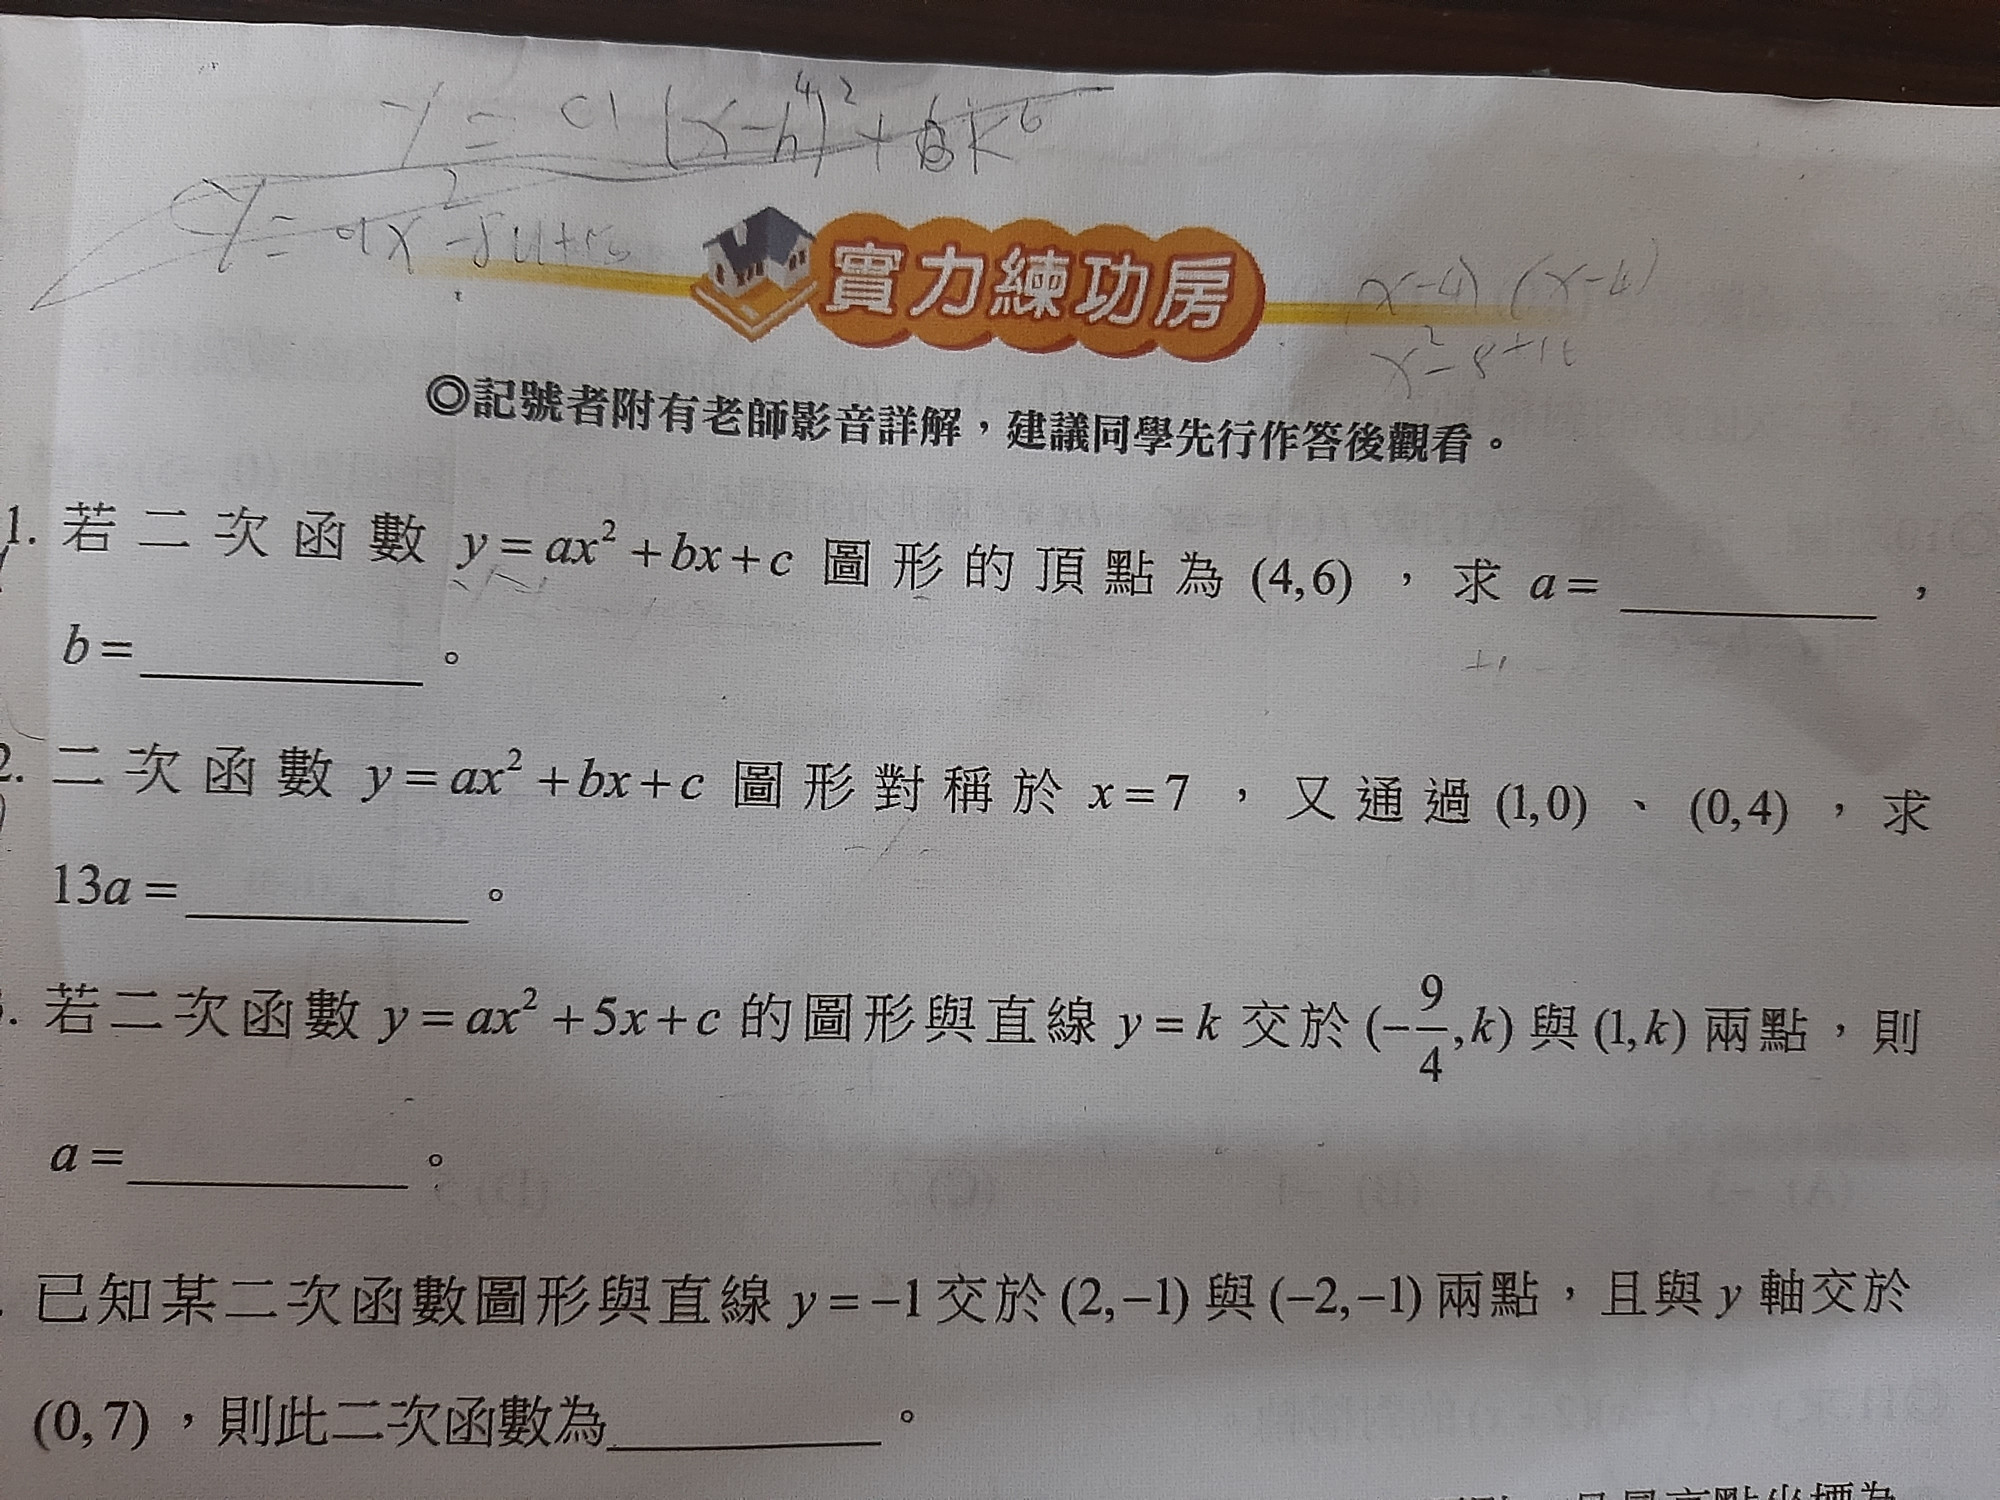 實力練功房
(x-4) (x-4)
◎記號者附有老師影音詳解，建議同學先行作答後觀看。
1. 若二次函數 y=ax²+bx+c 圖形的頂點為 (4,6) ，求 a= ________ ，
b=________。
2. 二次函數 y=ax²+bx+c 圖形對稱於 x=7 ，又通過 (1,0) 、 (0,4) ，求
13a=________。
. 若二次函數 y=ax²+5x+c 的圖形與直線 y=k 交於 (-9/4,k) 與 (1,k) 兩點，則
a=________。
. 已知某二次函數圖形與直線 y=-1 交於 (2,-1) 與 (-2,-1) 兩點，且與 y 軸交於
(0,7) ，則此二次函數為________。